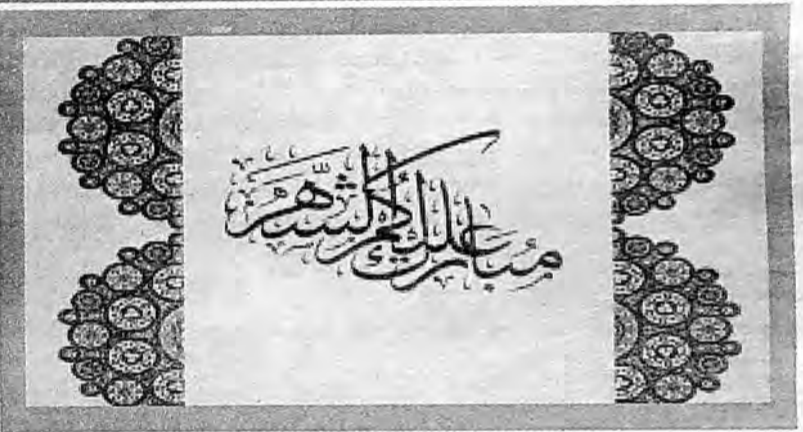 مُبارك عليكم الشَّهرُ